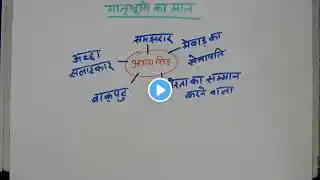 मातृभूमि का मान
समझदार
मेवाड़ का
सेनापति
अच्छा
सलाहकार
अभय सिंह
वाक्पटु
का सम्मान
करने वाला